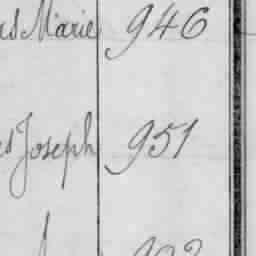 Marie 946
Joseph 951